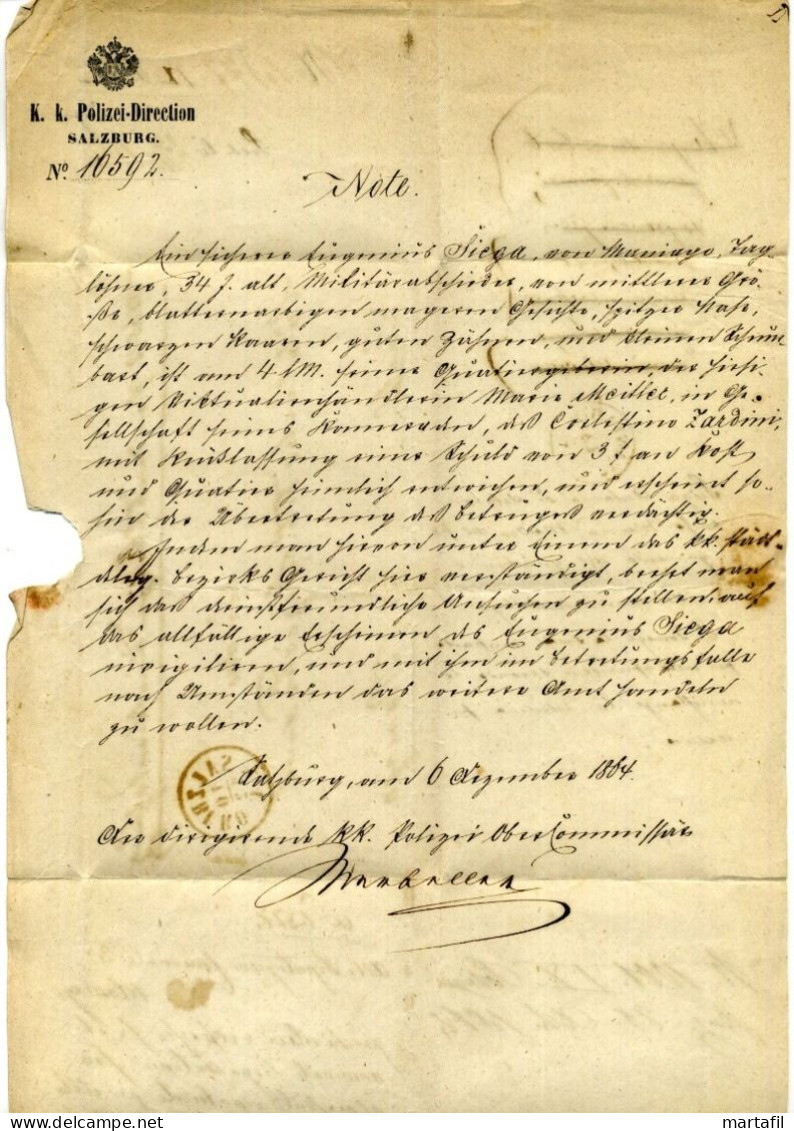 K. k. Polizei-Direction
SALZBURG.
No. 10592.
Note.
Ein sicherer Eugenius Siega, von Maniago, Tag-
löhner, 34 J. alt, Militärabschieder, von mittlerer Grö-
ße, blatternarbigen magerem Gesichte, spitzer Nase,
schwarzen Haaren, guten Zähnen, und kleinem Schnur-
bart, ist am 4 l M. seiner Quartiergeberin, der hiesi-
gen Viktualienhändlerin Marie Meittlet, in Ge-
sellschaft seines Kameraden, des Coelestino Zardini,
mit Rücklassung einer Schuld von 3 f an Kost
und Quartier heimlich entwichen, und erscheint so-
hin der Übertretung des Betruges verdächtig.
Indem man hievon unter Einem das kk. städt.
deleg. Bezirks Gericht hier verständigt, beehrt man
sich das dienstfreundliche Ansuchen zu stellen, auf
das allfällige Erscheinen des Eugenius Siega
invigiliren, und mit ihm im Betretungsfalle
nach Umständen das weitere Amt handeln
zu wollen.
Salzburg, am 6 Dezember 1864.
Der dirigirende kk. Polizei Ober Commissär
martafil